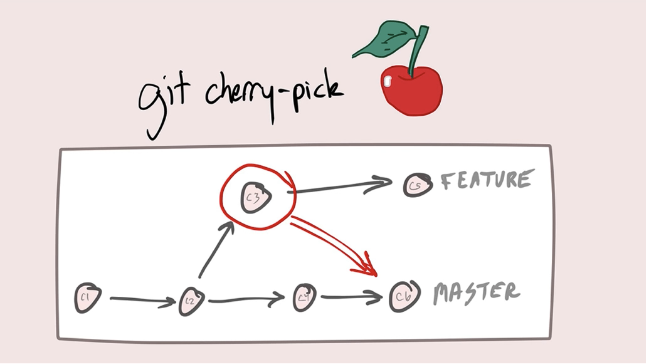 git cherry-pick
C3
C5 FEATURE
C1
C2
C6 MASTER